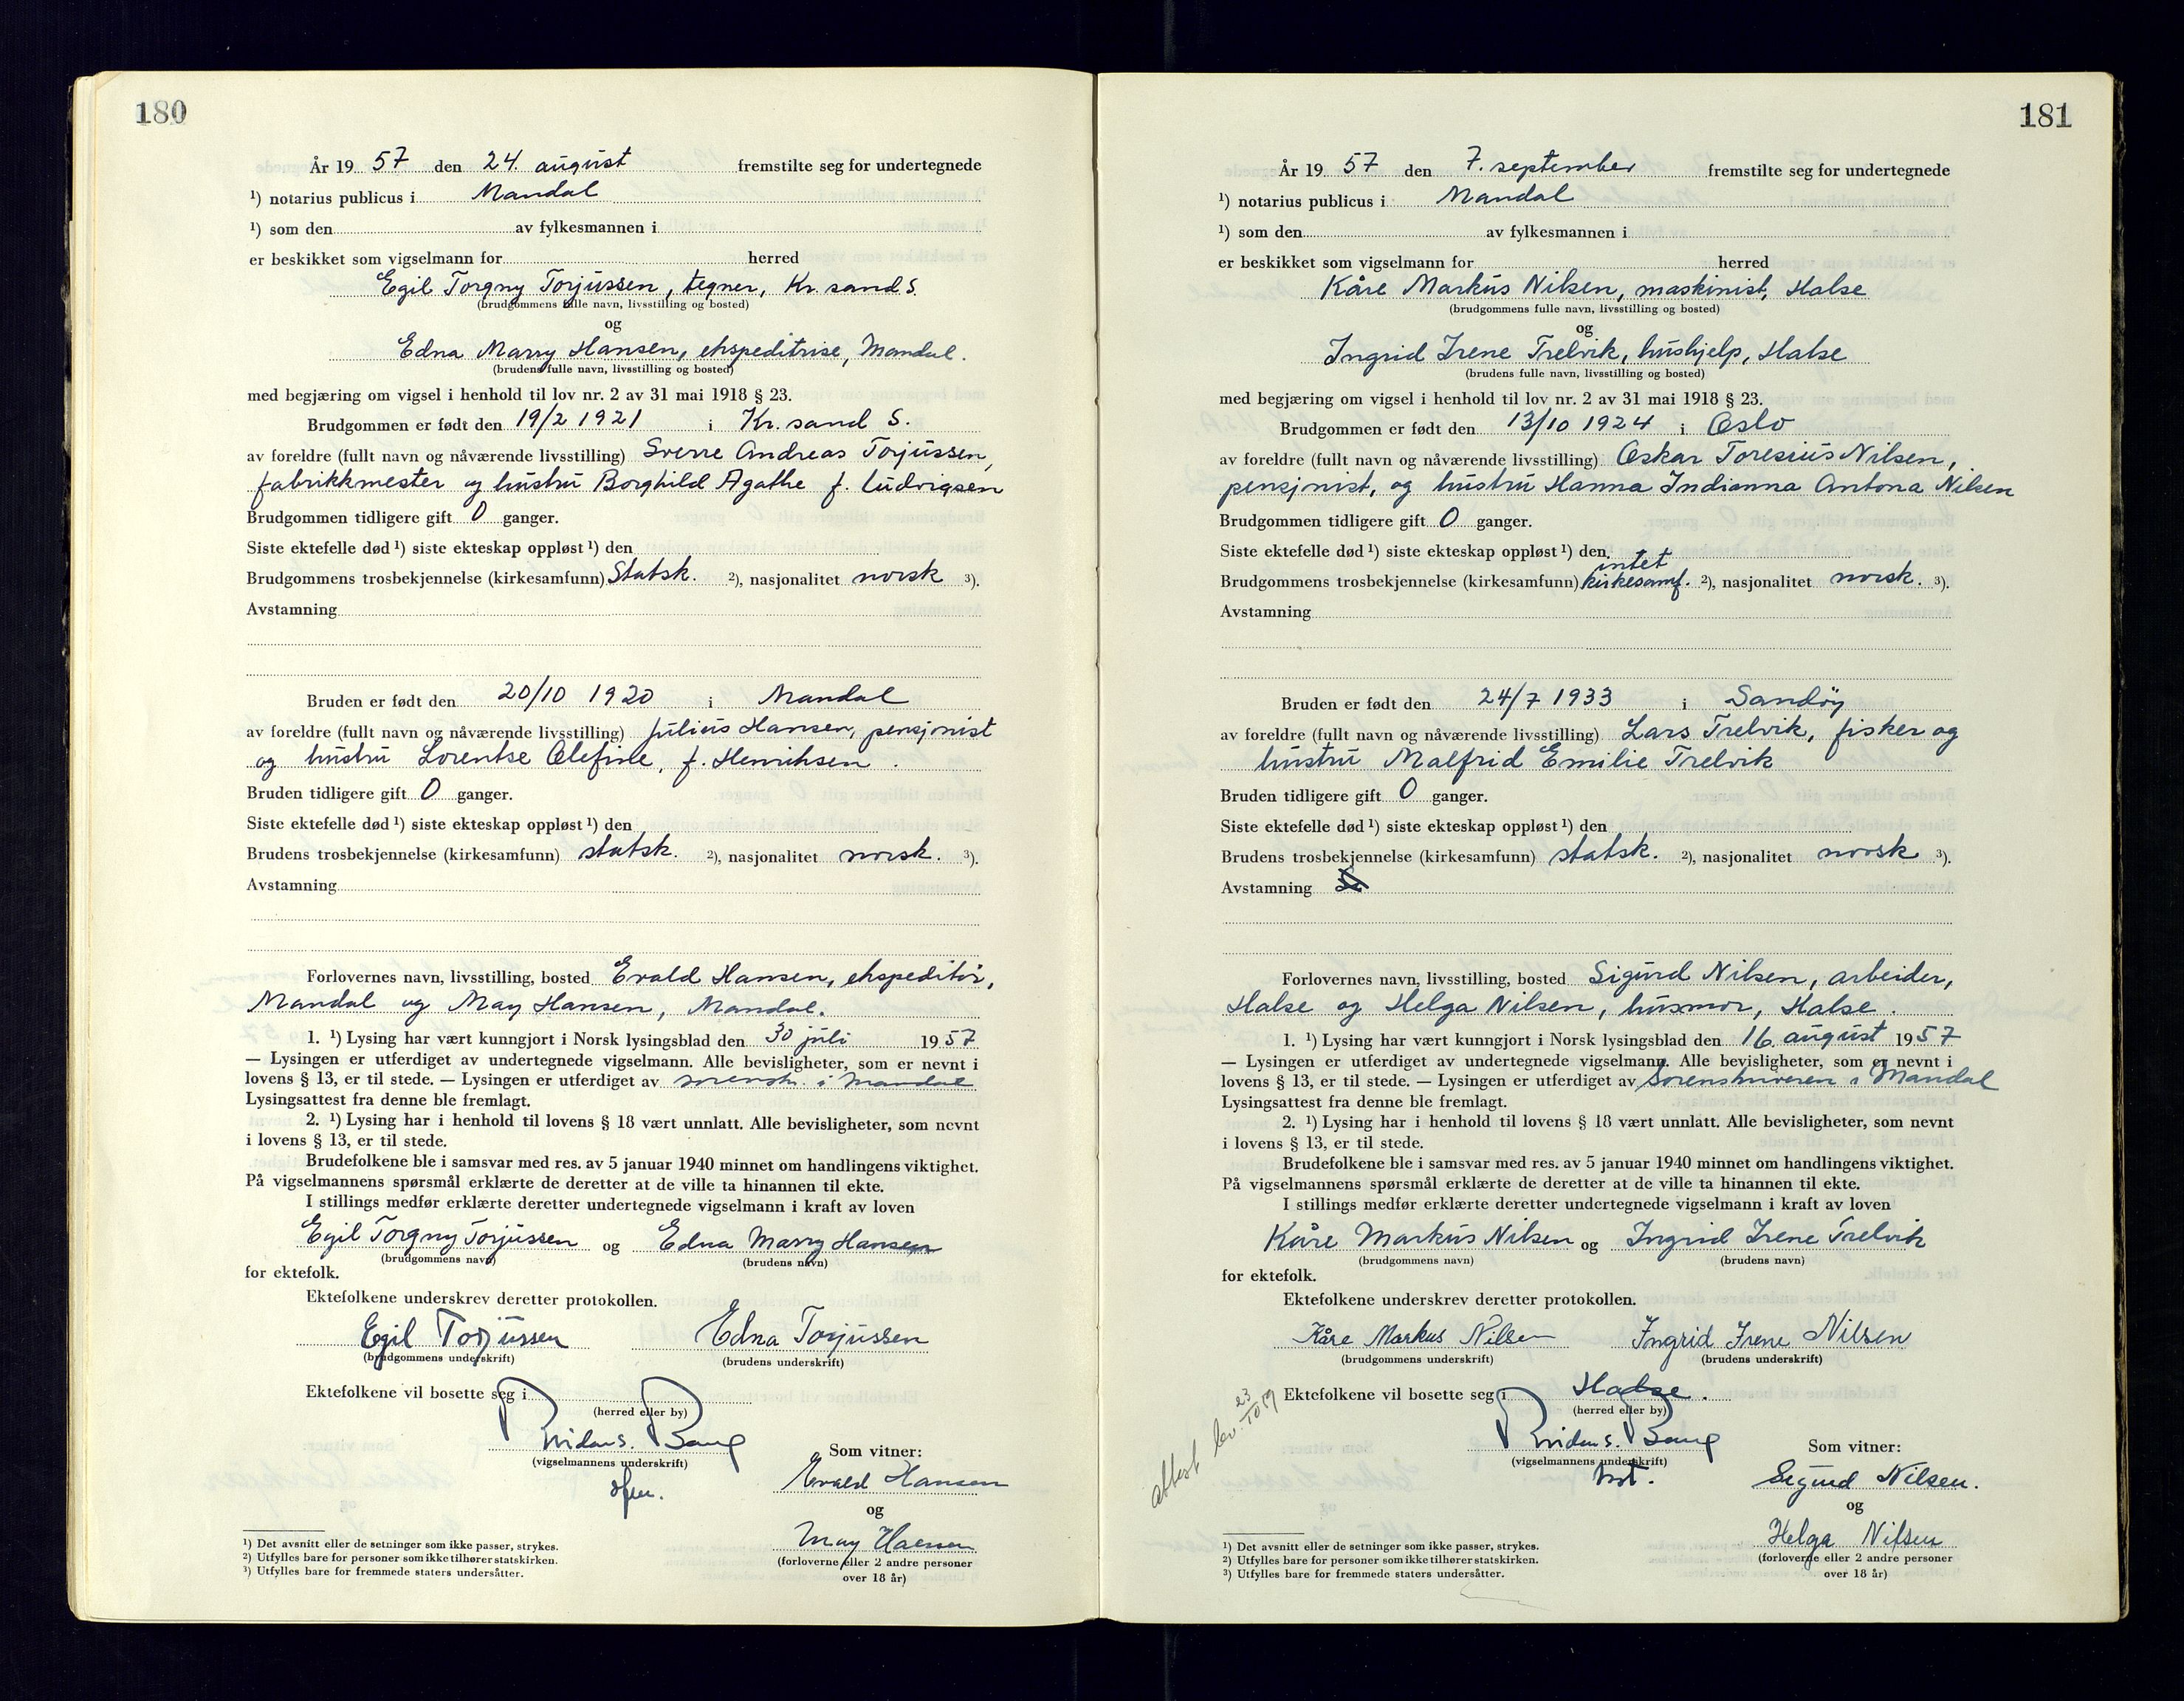 180
År 19 57 den 24. august fremstilte seg for undertegnede
¹) notarius publicus i Mandal
¹) som den av fylkesmannen i
er beskikket som vigselmann for herred
Egil Torgny Torjussen, tegner, Kr. sand S.
(brudgommens fulle navn, livsstilling og bosted)
og
Edna Marry Hansen, ekspeditrise, Mandal.
(brudens fulle navn, livsstilling og bosted)
med begjæring om vigsel i henhold til lov nr. 2 av 31 mai 1918 § 23.
Brudgommen er født den 19/2 1921 i Kr. sand S.
av foreldre (fullt navn og nåværende livsstilling) Sverre Andreas Torjussen,
fabrikkmester og hustru Borghild Agathe f. Ludvigsen
Brudgommen tidligere gift 0 ganger.
Siste ektefelle død ¹) siste ekteskap oppløst ¹) den
Brudgommens trosbekjennelse (kirkesamfunn) Statsk. ²), nasjonalitet norsk ³).
Avstamning
Bruden er født den 20/10 1920 i Mandal
av foreldre (fullt navn og nåværende livsstilling) Julius Hansen, pensjonist
og hustru Lorentse Olefine, f. Henriksen.
Bruden tidligere gift 0 ganger.
Siste ektefelle død ¹) siste ekteskap oppløst ¹) den
Brudens trosbekjennelse (kirkesamfunn) statsk. ²), nasjonalitet norsk. ³).
Avstamning
Forlovernes navn, livsstilling, bosted Evald Hansen, ekspeditør,
Mandal og May Hansen, Mandal.
1. ¹) Lysing har vært kunngjort i Norsk lysingsblad den 30 juli 1957
— Lysingen er utferdiget av undertegnede vigselmann. Alle bevisligheter, som er nevnt i
lovens § 13, er til stede. — Lysingen er utferdiget av sorensk. i Mandal
Lysingsattest fra denne ble fremlagt.
2. ¹) Lysing har i henhold til lovens § 18 vært unnlatt. Alle bevisligheter, som nevnt
i lovens § 13, er til stede.
Brudefolkene ble i samsvar med res. av 5 januar 1940 minnet om handlingens viktighet.
På vigselmannens spørsmål erklærte de deretter at de ville ta hinannen til ekte.
I stillings medfør erklærte deretter undertegnede vigselmann i kraft av loven
Egil Torgny Torjussen og Edna Marry Hansen
(brudgommens navn) (brudens navn)
for ektefolk.
Ektefolkene underskrev deretter protokollen.
Egil Torjussen Edna Torjussen
(brudgommens underskrift) (brudens underskrift)
Ektefolkene vil bosette seg i
(herred eller by)
Bang
(vigselmannens underskrift)
Som vitner:
Evald Hansen
og
May Hansen
(forloverne eller 2 andre personer
over 18 år)
¹) Det avsnitt eller de setninger som ikke passer, strykes.
²) Utfylles bare for personer som ikke tilhører statskirken.
³) Utfylles bare for fremmede staters undersåtter.
181
År 19 57 den 7. september fremstilte seg for undertegnede
¹) notarius publicus i Mandal
¹) som den av fylkesmannen i
er beskikket som vigselmann for herred
Kåre Markus Nilsen, maskinist, Halse
(brudgommens fulle navn, livsstilling og bosted)
og
Ingrid Irene Trelvik, hushjelp, Halse
(brudens fulle navn, livsstilling og bosted)
med begjæring om vigsel i henhold til lov nr. 2 av 31 mai 1918 § 23.
Brudgommen er født den 13/10 1924 i Oslo
av foreldre (fullt navn og nåværende livsstilling) Oskar Toresius Nilsen,
pensjonist, og hustru Hanna Indianna Antona Nilsen
Brudgommen tidligere gift 0 ganger.
Siste ektefelle død ¹) siste ekteskap oppløst ¹) den
intet
Brudgommens trosbekjennelse (kirkesamfunn) kirkesamf. ²), nasjonalitet norsk. ³).
Avstamning
Bruden er født den 24/7 1933 i Sandøy
av foreldre (fullt navn og nåværende livsstilling) Lars Trelvik, fisker og
hustru Malfrid Emilie Trelvik
Bruden tidligere gift 0 ganger.
Siste ektefelle død ¹) siste ekteskap oppløst ¹) den
Brudens trosbekjennelse (kirkesamfunn) statsk. ²), nasjonalitet norsk ³).
Avstamning
Forlovernes navn, livsstilling, bosted Sigurd Nilsen, arbeider,
Halse og Helga Nilsen, husmor, Halse.
1. ¹) Lysing har vært kunngjort i Norsk lysingsblad den 16. august 1957
— Lysingen er utferdiget av undertegnede vigselmann. Alle bevisligheter, som er nevnt i
lovens § 13, er til stede. — Lysingen er utferdiget av Sorenskriveren i Mandal
Lysingsattest fra denne ble fremlagt.
2. ¹) Lysing har i henhold til lovens § 18 vært unnlatt. Alle bevisligheter, som nevnt
i lovens § 13, er til stede.
Brudefolkene ble i samsvar med res. av 5 januar 1940 minnet om handlingens viktighet.
På vigselmannens spørsmål erklærte de deretter at de ville ta hinannen til ekte.
I stillings medfør erklærte deretter undertegnede vigselmann i kraft av loven
Kåre Markus Nilsen og Ingrid Irene Trelvik
(brudgommens navn) (brudens navn)
for ektefolk.
Ektefolkene underskrev deretter protokollen.
Kåre Markus Nilsen Ingrid Irene Nilsen
(brudgommens underskrift) (brudens underskrift)
Ektefolkene vil bosette seg i Halse.
(herred eller by)
attest lev. 23/10
Bang
(vigselmannens underskrift)
Som vitner:
Sigurd Nilsen.
og
Helga Nilsen
(forloverne eller 2 andre personer
over 18 år)
¹) Det avsnitt eller de setninger som ikke passer, strykes.
²) Utfylles bare for personer som ikke tilhører statskirken.
³) Utfylles bare for fremmede staters undersåtter.